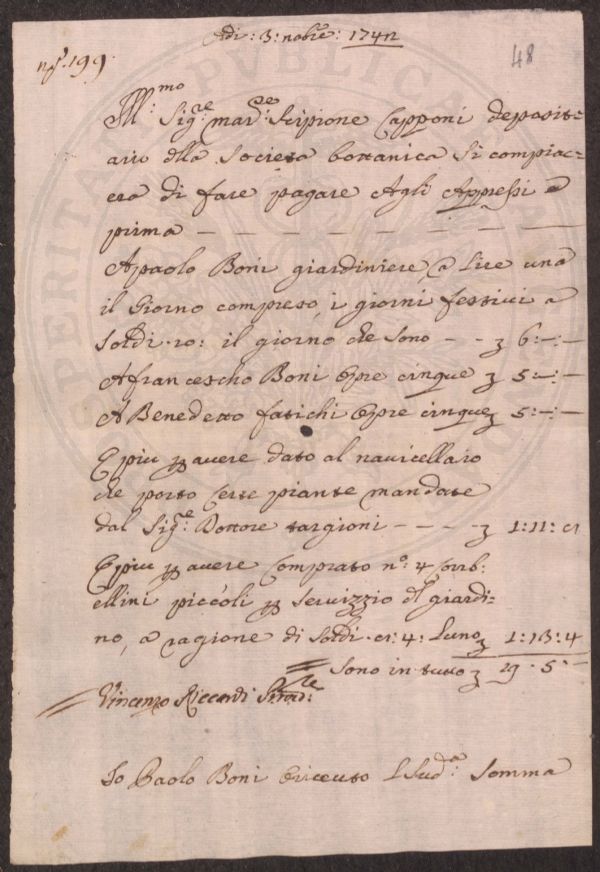 Adi: 3: nobre: 1742
48
no. 199
Ill:mo Sigre: marse: Scipione Capponi deposit=
ario della Società bottanica Si compiac=
cia di fare pagare Agli Appressi a
prima — — — — — —
A paolo Boni giardiniere, a lire una
il Giorno compreso, i giorni festivi a
Soldi 10: il giorno che sono - - 6:—:—
A francescho Boni opre cinque 5:—:—
A Benedetto fatichi opre cinque 5:—:—
E piu p avere dato al navicellaio
che porto certe piante mandate
dal Sigre: Dottore targioni - - - - 1:11:
E piu p avere Comprato no: 4 Corb:
ellini piccoli p servizzio del giardi=
no, a ragione di Soldi 4: l'uno 1:13:4
Sono in tutto 19. 5:—
Vincenzo Riccardi
Io Paolo Boni ò riceuto l Sudda: Somma